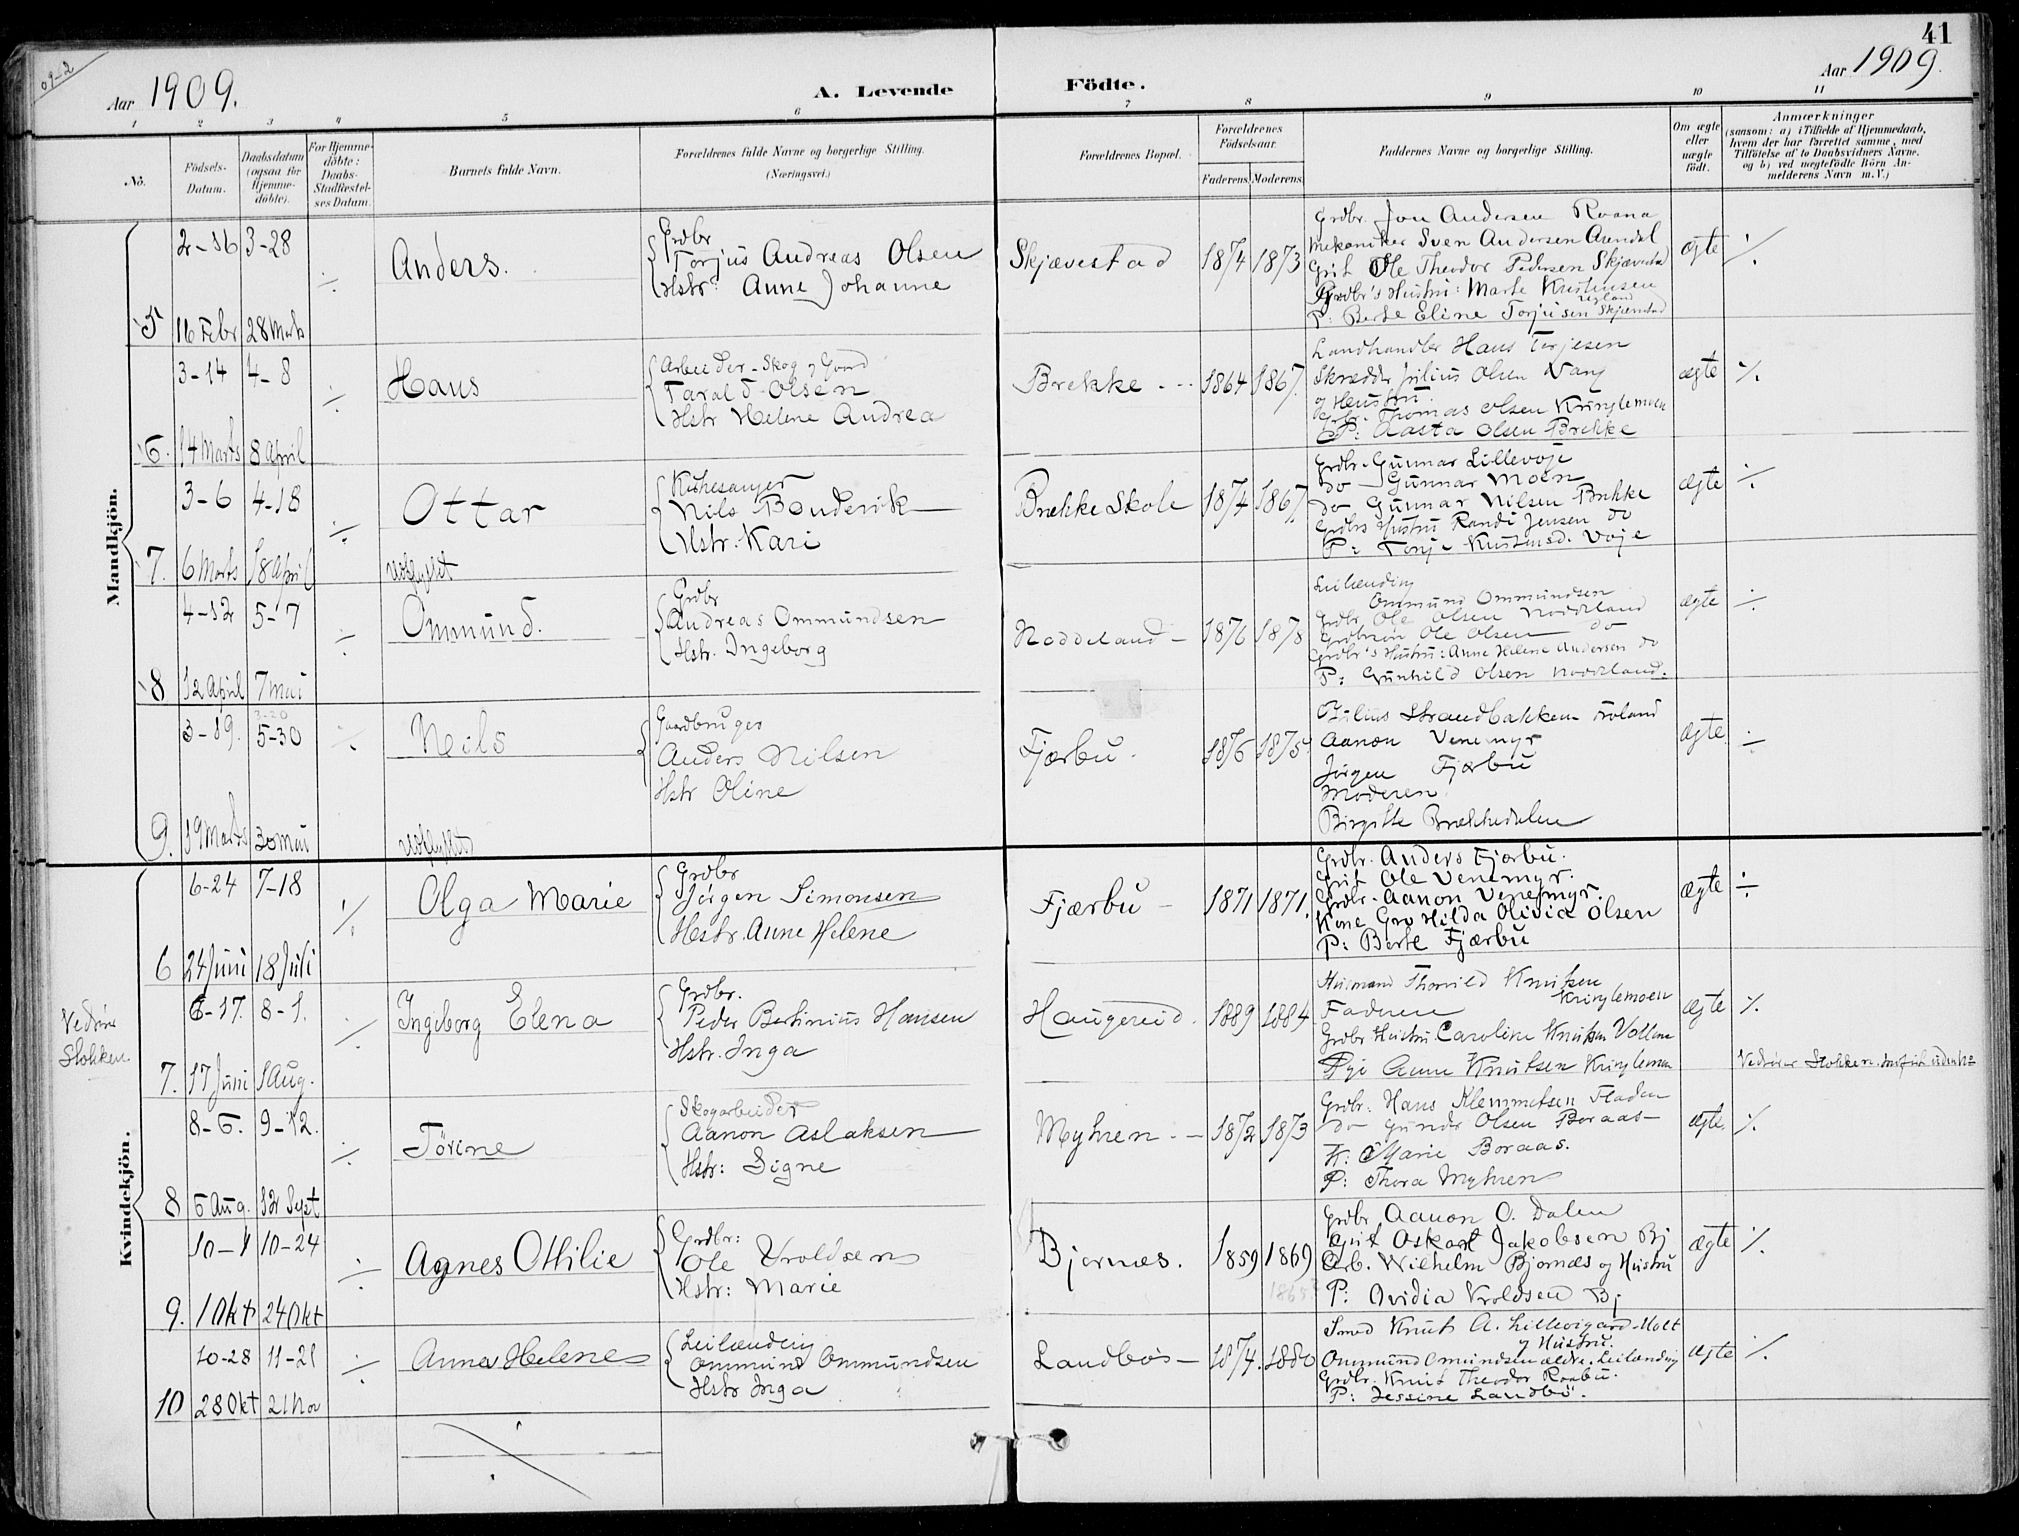 41
09-2
Aar 1909.
A. Levende Födte.
Aar 1909.
1 2 3 4 5 6 7 8 9 10 11
No.
Födsels-Datum.
Daabsdatum (ogsaa for Hjemme-döbte).
For Hjemme-döbte: Daabs-Stadfæstel-ses Datum.
Barnets fulde Navn.
Forældrenes fulde Navne og borgerlige Stilling. (Næringsvei.)
Forældrenes Bopæl.
Forældrenes Födselsaar.
Faderens. Moderens.
Faddernes Navne og borgerlige Stilling.
Om ægte eller uægte födt.
Anmærkninger
(saasom: a) i Tilfælde af Hjemmedaab, hvem der har forrettet samme, med Tilföielse af to Daabsvidners Navne, og b) ved uægtefödte Börn An-melderens Navn m. V.)
Mandkjön.
5 2-16 3-28
16 Febr 28 Marts
÷ Anders.
Grdbr
Torjus Andreas Olsen
Hstr: Anne Johanne
Skjævestad 1874 1873
Grdbr. Jon Andersen Roana
Mekaniker Sven Andersen Arendal
Grit Ole Theodor Pedersen Skjævestad
Grdbr's Hustru: Marte Kristensen
P: Berte Eline Torjusen Skjævestad
ægte ÷
6. 3-14 4-8
14 Marts 8 April
÷ Hans
Arbeider-Skog og Gaard
Tarald T. Olsen
Hstr Helene Andrea
Brekke 1864 1867.
Landhandler Hans Terjesen
Skrædder Julius Olsen Vang
og Hustru.
Thomas Olsen Kringlemoen
P: Aasta Olsen Brekke
ægte ÷
7. 3-6 4-18
6 Marts 18 April
÷ Ottar
Udflyttet
Kirkesanger
Nils Bondevik
Hstr. Kari
Brække Skole 1874 1867.
Grdbr. Gunnar Lillevøje
do Gunnar Moen
do Gunnar Nilsen Brekke
Grdbrs Hustru Randi Jensen do
P: Tonje Kristensd. Vøje
ægte ÷
8 4-12 5-7
12 April 7 Mai
÷ Ommund.
Grdbr
Andreas Ommundsen
Hstr. Ingeborg
Noddeland 1876 1878
Leilænding
Ommund Ommundsen
Grdbr Ole Olsen Noddeland
Ole Olsen do
Grdbr's Hustru: Anne Helene Andersen do
P: Gunhild Olsen Noddeland.
ægte ÷
9. 3-19. 5-30
19 Marts 30 Mai
÷ Nils
Udflyttet
Gaardbruger
Anders Nilsen
Hstr Oline
Fjærbu. 1876 1875
Julius Strandbakken Froland
Aanon Venemyr
Jørgen Fjærbu
Moderen
Birgitte Brækkedalen
ægte ÷
Kvindekjön.
6 6-24 7-18
24 Juni 18 Juli
÷ Olga Marie
Grdbr
Jørgen Simonsen
Hstr. Anne Helene
Fjærbu 1871 1871.
Grdbr. Anders Fjærbu.
Grit Ole Venemyr.
Grdbr. Aanon Venemyr.
Kone Gro Hilda Olivia Olsen
P: Berte Fjærbu
ægte ÷
Vedrøre Stokken
7. 6-17. 8-1.
17 Juni 1 Aug.
÷ Ingeborg Elena
Grdbr.
Peder Bertinius Hansen
Hstr. Inga
Haugereid. 1889 1884
Husmand Thorvild Knutsen
Kringlemoen
Faderen
Grdbr Hustru Caroline Knutsen Vollene
Pige Anne Knutsen Kringlemoen
ægte ÷
Vedrører Stokken
8 8-5. 9-12.
5 Aug. 12 Sept
÷ Tørine
Skogarbeider
Aanon Aslaksen
Hstr: Signe
Myhren 1872 1873
Grdbr: Hans Klemmetsen Fladen
do Gunder Olsen Boraas
K: Marie Boraas.
P: Thora Myhren
ægte. ÷
9. 10-1 10-24
1 Okt 24 Okt
÷ Agnes Othilie
Grdbr:
Ole Vroldsen
Hstr: Marie
Bjornæs. 1859 1869
Grdbr Aanon O. Dalen
Grit Oskar Jakobsen Bj
Arb. Wilhelm Bjornæs og Hustru
P: Ovidia Vroldsen Bj
ægte ÷
10 10-28 11-21
28 Okt 21 Nov
÷ Anne Helene
Leilænding
Ommund Ommundsen
Hstr Inga
Landbøs 1874. 1880
Smed Knut A. Lillevigard-Molt
og Hustru.
Ommund Omundsen ældre. Leilænding
Grdbr. Knut Theodor Roabu.
P: Jessine Landbø.
ægte ÷